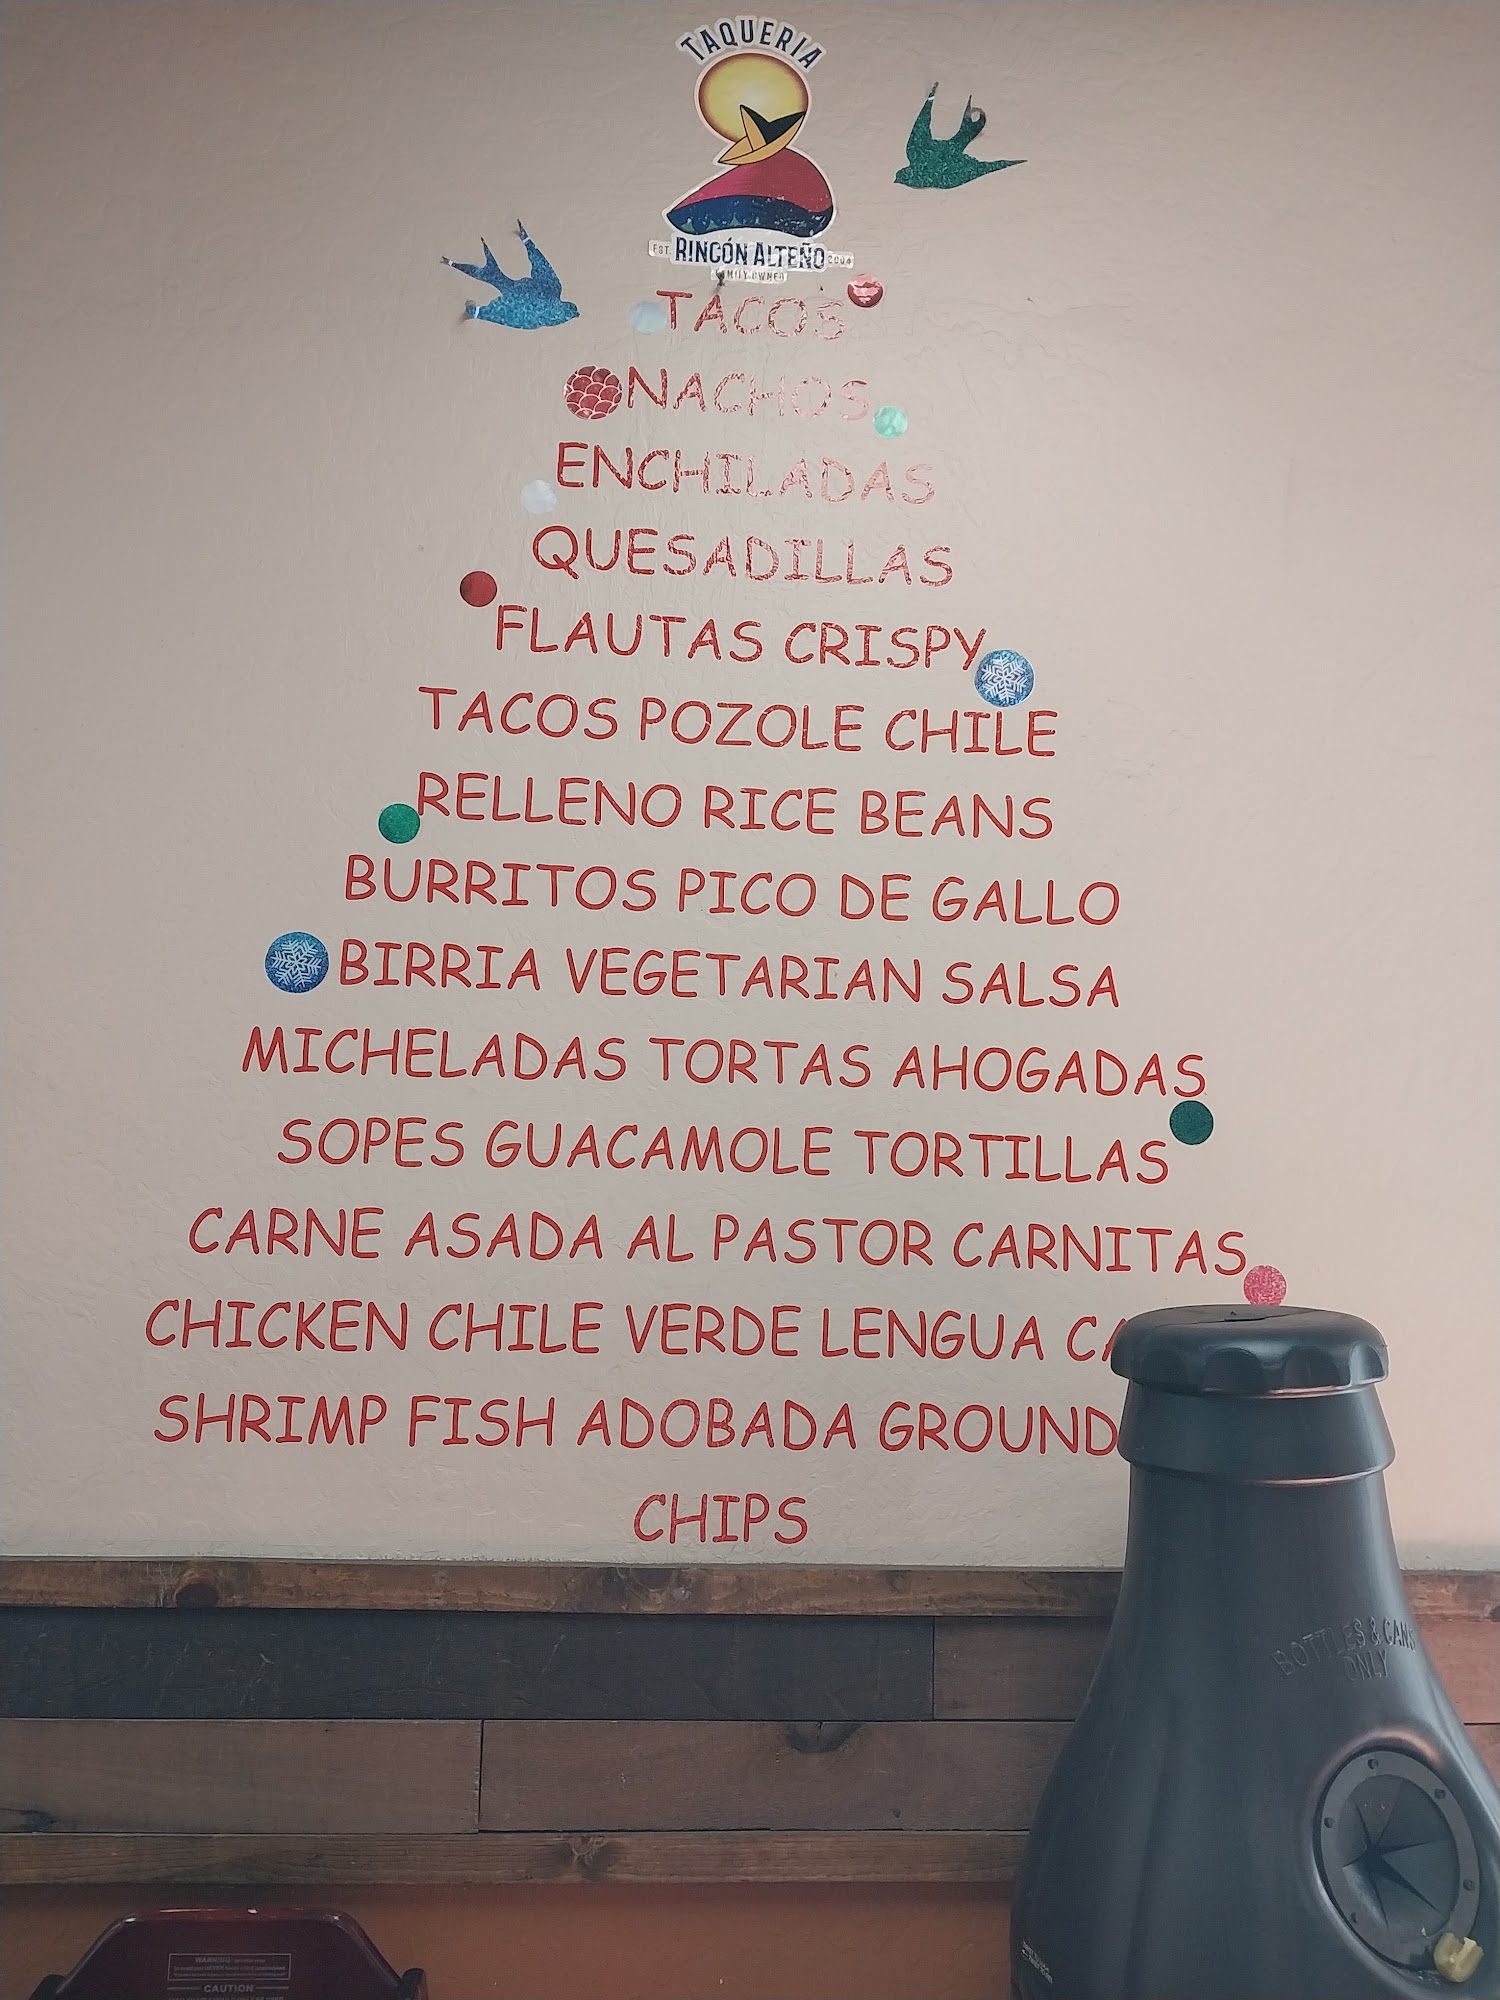 TAQUERIA
EST. RINCÓN ALTEÑO 2004
FAMILY OWNED
TACOS
NACHOS
ENCHILADAS
QUESADILLAS
FLAUTAS CRISPY
TACOS POZOLE CHILE
RELLENO RICE BEANS
BURRITOS PICO DE GALLO
BIRRIA VEGETARIAN SALSA
MICHELADAS TORTAS AHOGADAS
SOPES GUACAMOLE TORTILLAS
CARNE ASADA AL PASTOR CARNITAS
CHICKEN CHILE VERDE LENGUA CA
SHRIMP FISH ADOBADA GROUND
CHIPS
BOTTLES & CANS
ONLY
WARNING
CAUTION